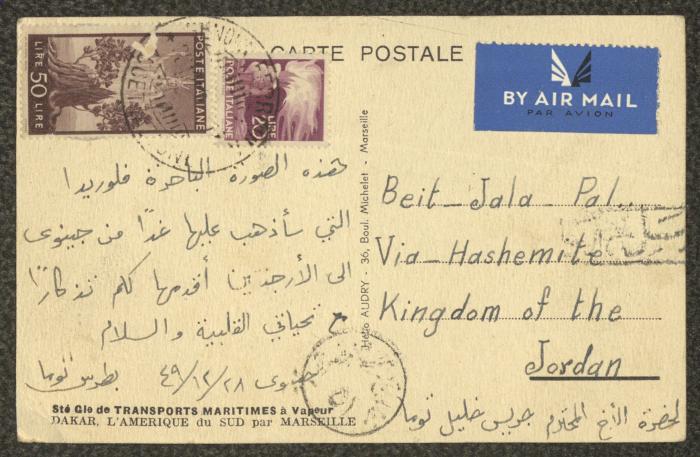 CARTE POSTALE
POSTE ITALIANE
LIRE 50 LIRE
POSTE ITALIANE
LIRE 20
BY AIR MAIL
PAR AVION
هذه الصورة الباخرة فلوريدا
التي سأذهب عليها غدًا من جينوى
الى الأرجنتين أقدمها لكم تذكارًا
مع تحياتي القلبية والسلام
جنوى ٤٩/١٢/٢٨ بطرس توما
Sté Gle de TRANSPORTS MARITIMES à Vapeur
DAKAR, L'AMERIQUE du SUD par MARSEILLE
Hélio AUDRY - 36, Boul. Michelet - Marseille
Beit-Jala-Pal.
Via-Hashemite
Kingdom of the
Jordan
لحضرة الأخ المحترم جريس خليل توما